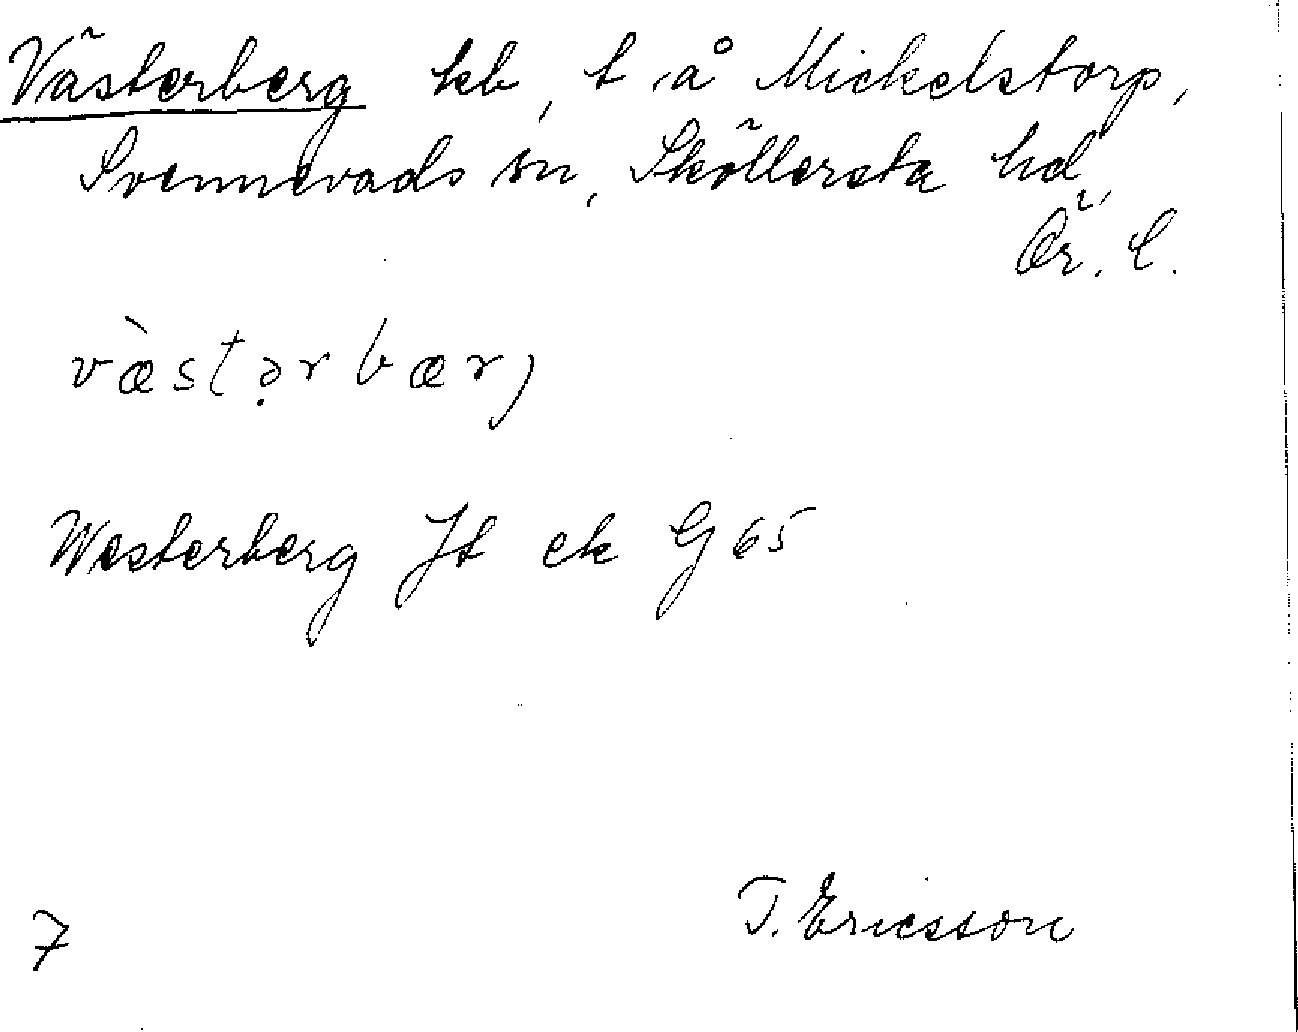 Västerberg kb, t å Mickelstorp,
Svennevads sn, Sköllersta hd,
Ör. l.
vàstərbær)
Westerberg Jt ek G 65
T. Ericsson
7